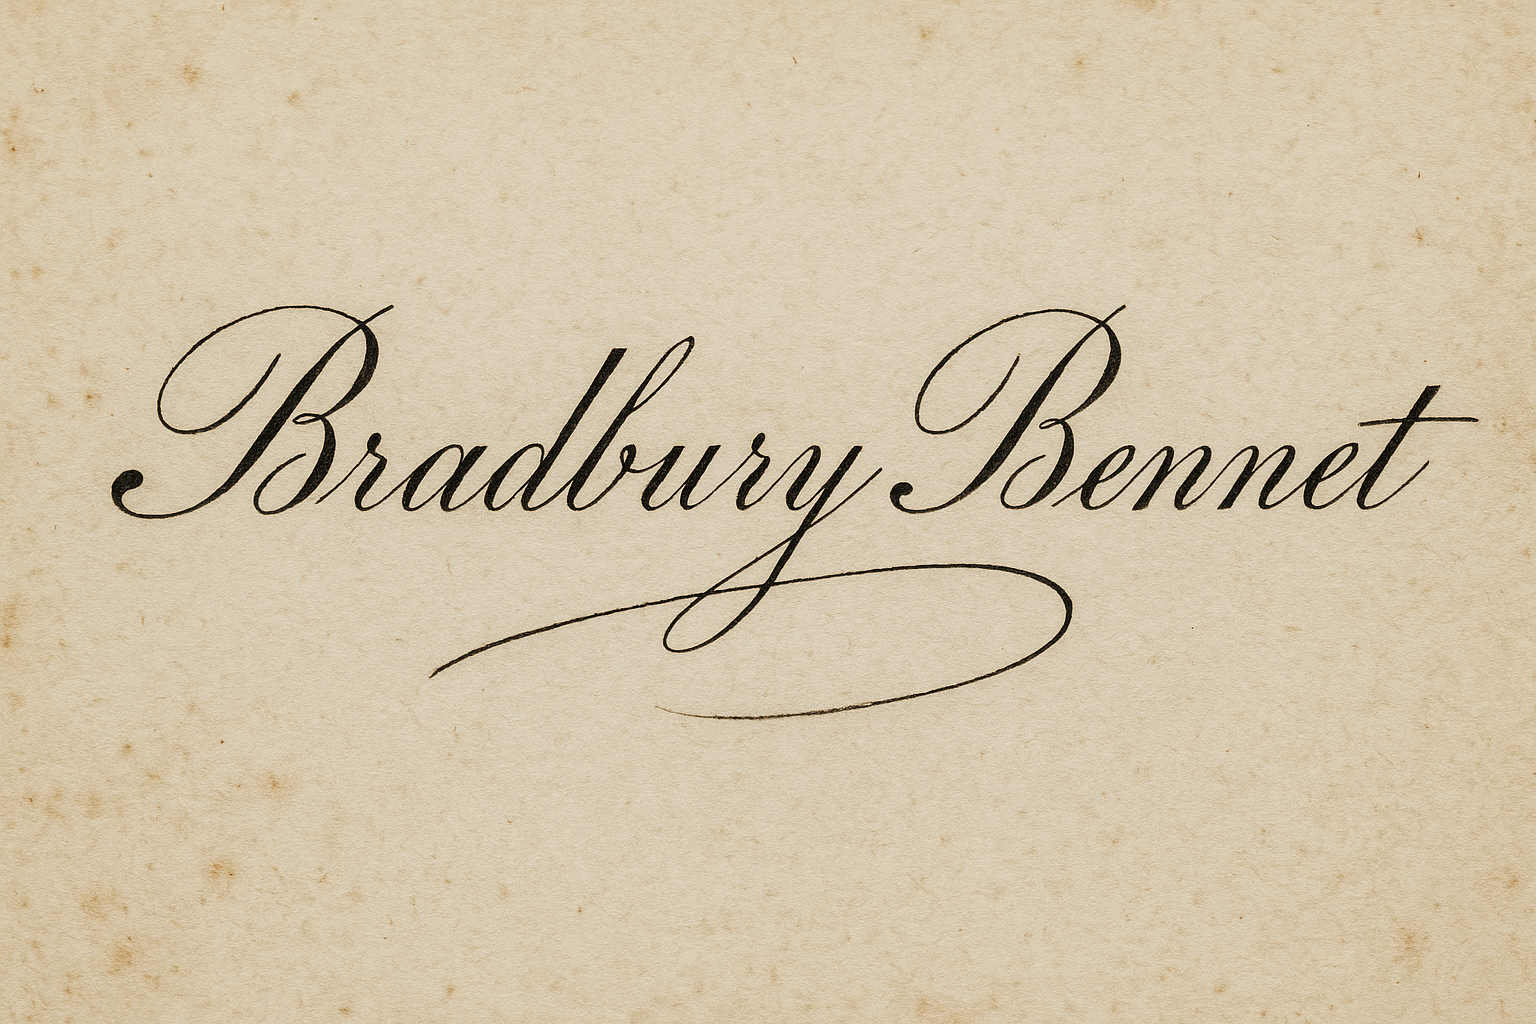 Bradbury Bennet